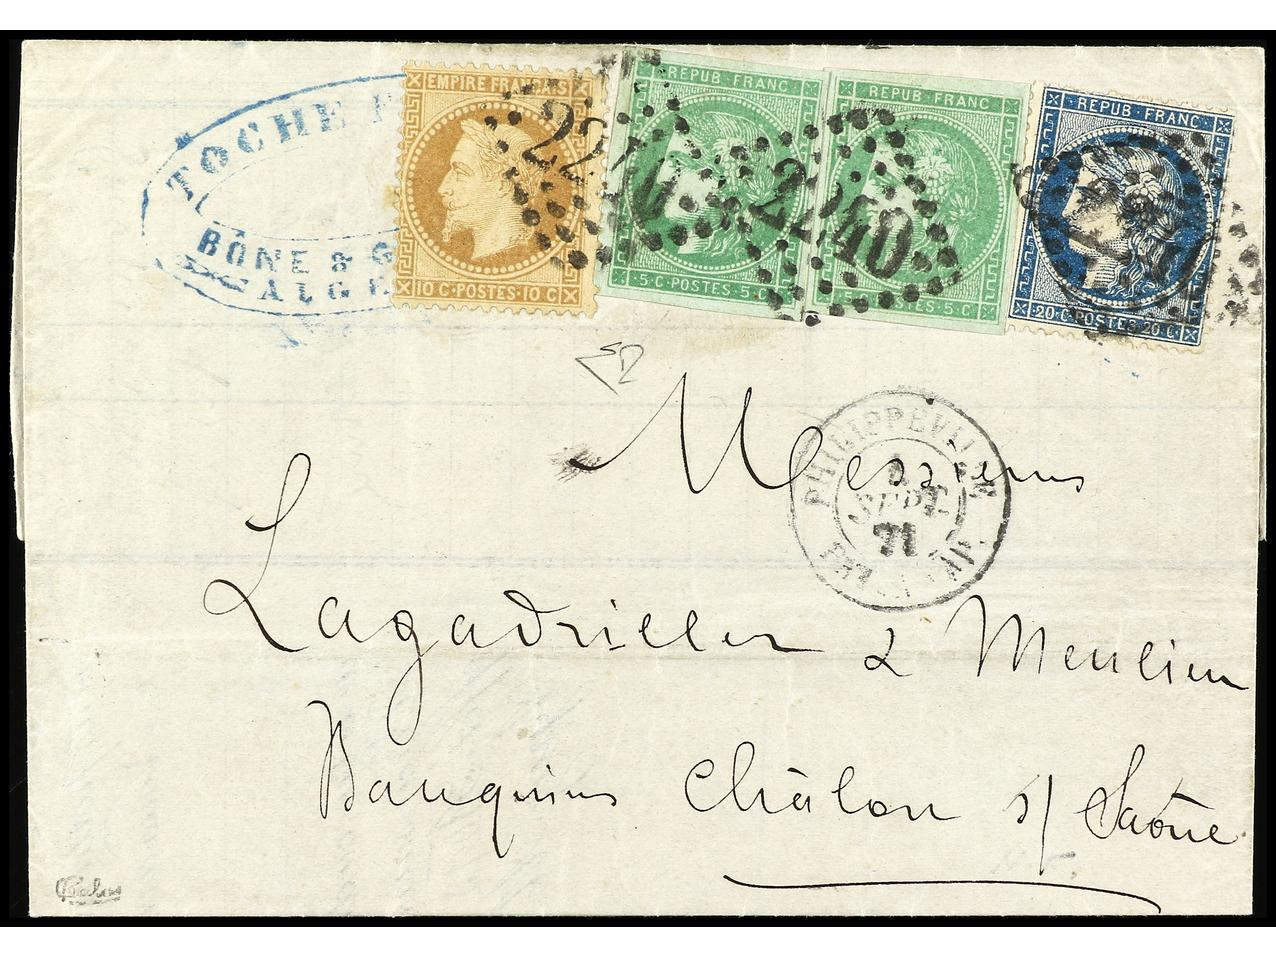 TOCHE
BÔNE & G
ALGE
EMPIRE FRANÇAIS
10 C·POSTES·10 C
REPUB·FRANC
5·C·POSTES·5·C
REPUB·FRANC
5·C·POSTES·5·C
REPUB·FRANC
20·C·POSTES·20·C
2240
2240
PHILIPPEVILLE
SEPT.
71
Messieurs
Lagadriller & Meulien
Banquiers Châlon s/ Saône